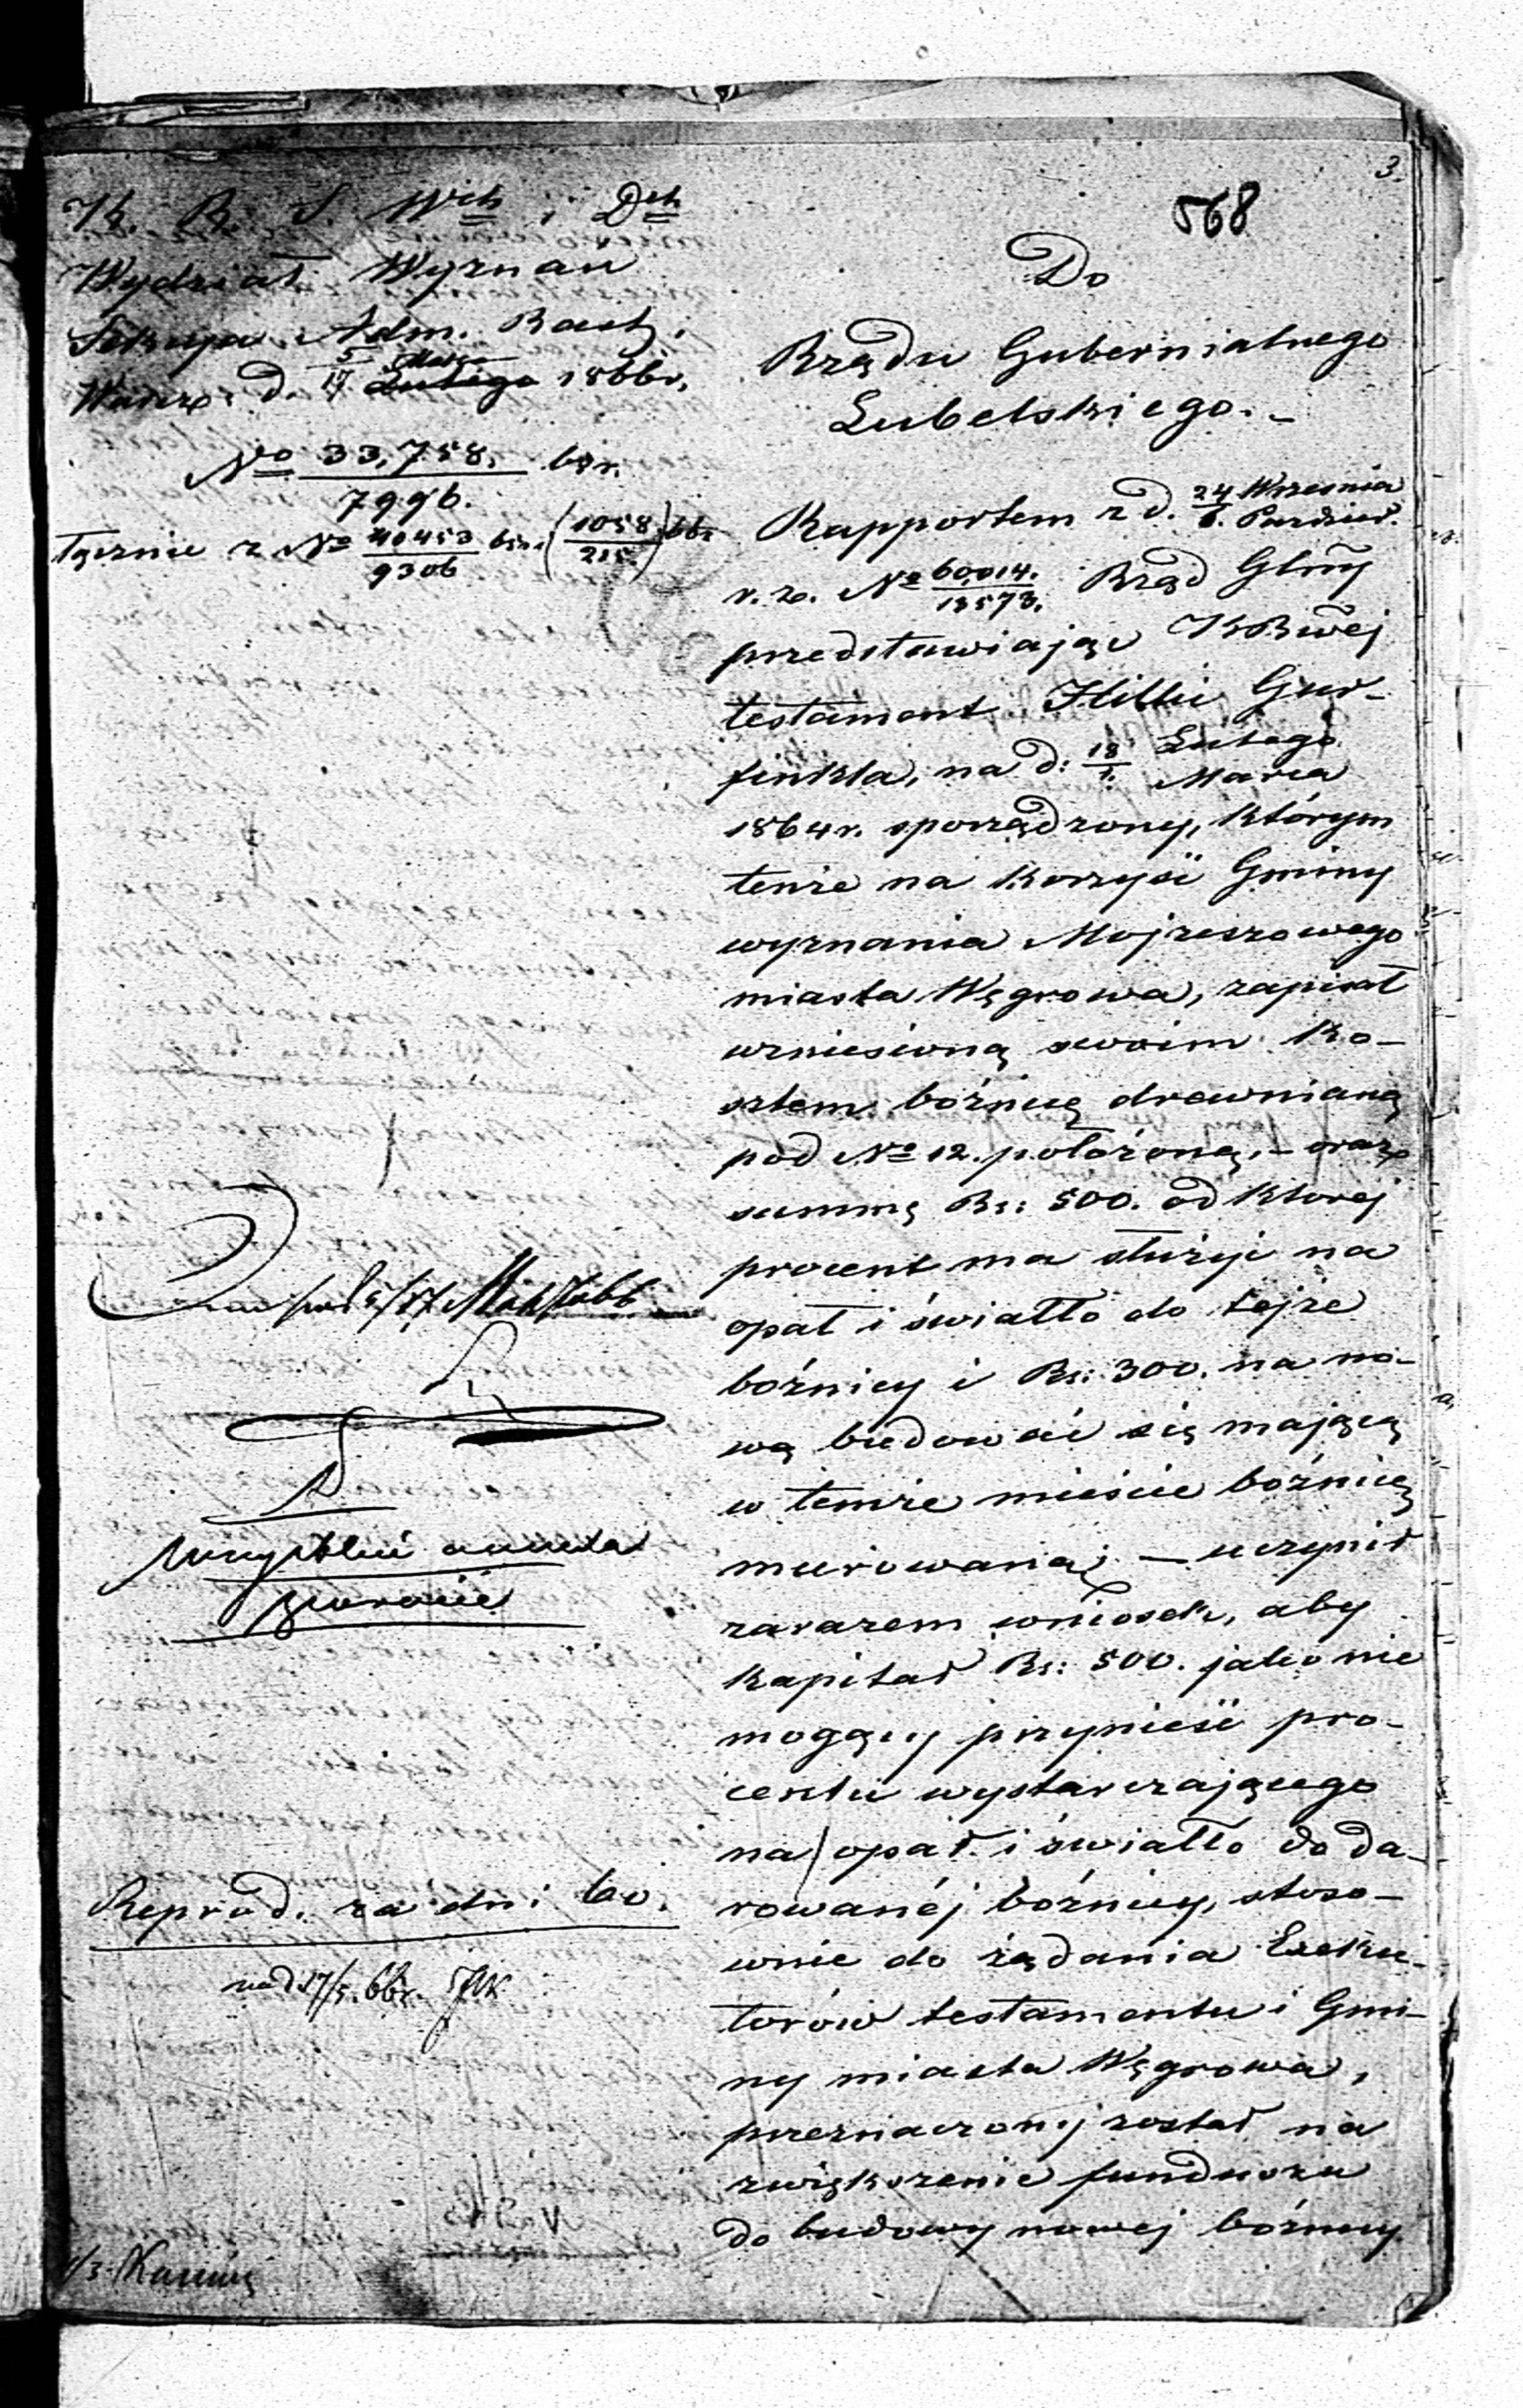 3.
568
K. R. S. Wch i Dch
Wydział Wyznań
Sekcya Adm. Rach.
Warsz. d. 5/17 Marca Lutego 1866 r.
No 33,758./7996. 65 r.
łącznie z No 40453/9306 65 r. (1058/215) 66 r
Do
Rządu Gubernialnego
Lubelskiego. -
Rapportem z d. 24 Września/6. Paździer.
r. z. No 60,014./13573. Rząd Glny
przedstawiając KRwej
testament Hilli Gur-
finkla, na d: 18/1. Lutego/Marca
1864 r. sporządzony, którym
tenże na korzyść Gminy
wyznania Mojżeszowego
miasta Węgrowa, zapisał
wzniesioną swoim ko-
sztem bóźnicę drewnianą
pod No 12. położoną, - oraz
summę Rs: 500. od ktorej
procent ma służyć na
opał i światło do tejże
bóźnicy i Rs: 300. na no-
wą budować się mającą
w temże mieście bóźnicę
murowaną; - uczynił
zarazem wniosek, aby
kapitał Rs: 500. jako nie
mogący przynieść pro-
centu wystarczającego
na opał i światło do da-
rowanéj bóźnicy, stoso-
wnie do żądania Exeku-
torów testamentu i Gmi-
ny miasta Węgrowa,
przeznaczony został na
zwiększenie funduszu
do budowy nowej bóźnicy
5/17
Wszystkie annexa
zwrócić
Reprod. za dni 60.
nad 17/5. 66 r.